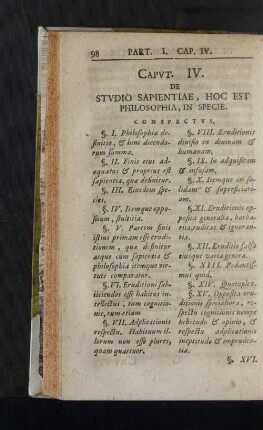 98 PART. I. CAP. IV.
CAPVT. IV.
DE
STVDIO SAPIENTIAE, HOC EST
PHILOSOPHIA, IN SPECIE.
CONSPECTVS.
§. I. Philosophiæ de-
finitio, & hinc dicendo-
rum summa.
§. II. Finis eius ad-
æquatus & proprius est
sapientia, quæ definitur.
§. III. Eiusdem spe-
cies.
§. IV. Itemque oppo-
situm, stultitia.
§. V. Partem finis
istius primam esse erudi-
tionem, quæ definitur
atque cum sapientia &
philosophia itemque vir-
tute comparatur.
§. VI. Eruditioni sub-
iiciendos esse habitus in-
tellectus, tum cognitio-
nis, tum etiam
§. VII. Adplicationis
respectu. Habituum il-
lorum non esse plures,
quam quattuor.
§. VIII. Eruditionis
divisio in divinam &
humanam,
§. IX. In adquisitam
& infusam,
§. X. Itemque in so-
lidam & superficiari-
am.
§. XI. Eruditionis op-
posita generalia, barba-
ries, ruditas & ignoran-
tia.
§. XII. Eruditio falsa
eiusque varia genera.
§. XIII. Pedantis-
mus quid,
§. XIV. Quotuplex.
§. XV. Opposita eru-
ditionis specialiora, re-
spectu cognitionis nempe
hebetudo & opinio, &
respectu adplicationis
ineptitudo & impruden-
tia.
§. XVI.